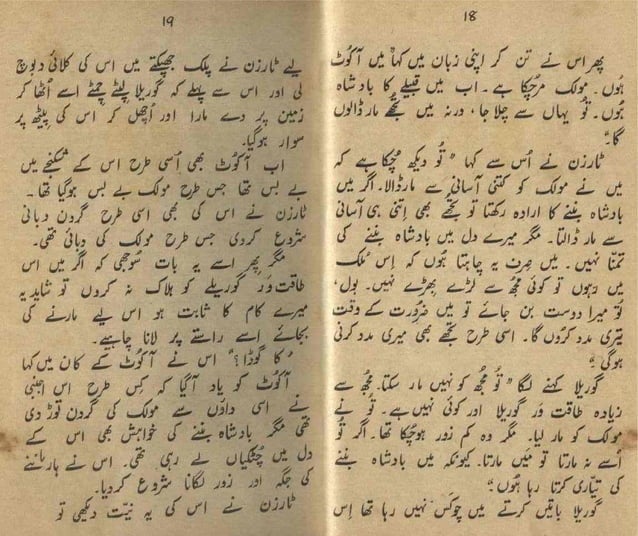 18
پھر اس نے تن کر اپنی زبان میں کہا میں آکوٹ
ہُوں۔ مولک مرچکا ہے۔ اب میں قبیلے کا بادشاہ
ہُوں۔ تُو یہاں سے چلا جا، ورنہ میں تجھے مار ڈالوں
گا"
ٹارزن نے اُس سے کہا "تو دیکھ چُکا ہے کہ
میں نے مولک کو کتنی آسانی سے مار ڈالا۔ اگر میں
بادشاہ بننے کا ارادہ رکھتا تو تجھے بھی اِتنی ہی آسانی
سے مار ڈالتا۔ مگر میرے دل میں بادشاہ بننے کی
تمنّا نہیں۔ میں صِرف یہ چاہتا ہُوں کہ اِس مُلک
میں رہوں تو کوئی مُجھ سے لڑے بِھڑے نہیں۔ بول،
تُو میرا دوست بن جائے تو میں ضرُورت کے وقت
تیری مدد کرُوں گا۔ اسی طرح تجھے بھی میری مدد کرنی
ہوگی"
گوریلا کہنے لگا "تُو مُجھ کو نہیں مار سکتا۔ مُجھ سے
زیادہ طاقت وَر گوریلا اور کوئی نہیں ہے۔ تُو نے
مولک کو مار لیا۔ مگر وہ کم زور ہوچُکا تھا۔ اگر تُو
اُسے نہ مارتا تو مَیں مارتا۔ کیونکہ میں بادشاہ بننے
کی تیّاری کرتا رہا ہُوں"
گوریلا باتیں کرتے میں چوکس نہیں رہا تھا اِس
19
لیے ٹارزن نے پلک جھپکتے میں اس کی کلائی دبوچ
لی اور اس سے پہلے کہ گوریلا لپٹے چمٹے اسے اُٹھا کر
زمین پر دے مارا اور اُچھل کر اس کی پِیٹھ پر
سوار ہوگیا۔
اب آکوٹ بھی اُسی طرح اس کے شکنجے میں
بے بس تھا جس طرح مولک بے بس ہوگیا تھا۔
ٹارزن نے اس کی بھی اسی طرح گردن دبانی
شروع کردی جس طرح مولک کی دبائی تھی۔
مگر پھر اسے یہ بات سُوجھی کہ اگر میں اس
طاقت وَر گوریلے کو ہلاک نہ کروں تو شاید یہ
میرے کام کا ثابت ہو اس لیے مارنے کی
بجائے اسے راستے پر لانا چاہیے۔
"کا گوڈا؟" اس نے آکوٹ کے کان میں کہا
آکوٹ کو یاد آگیا کہ کِس طرح اس اجنبی
نے اسی داؤں سے مولک کی گردن توڑ دی
تھی مگر بادشاہ بننے کی خواہش بھی اس کے
دل میں چُٹکیاں لے رہی تھی۔ اس نے ہار ماننے
کی جگہ اور زور لگانا شروع کردیا۔
ٹارزن نے اس کی یہ نیّت دیکھی تو